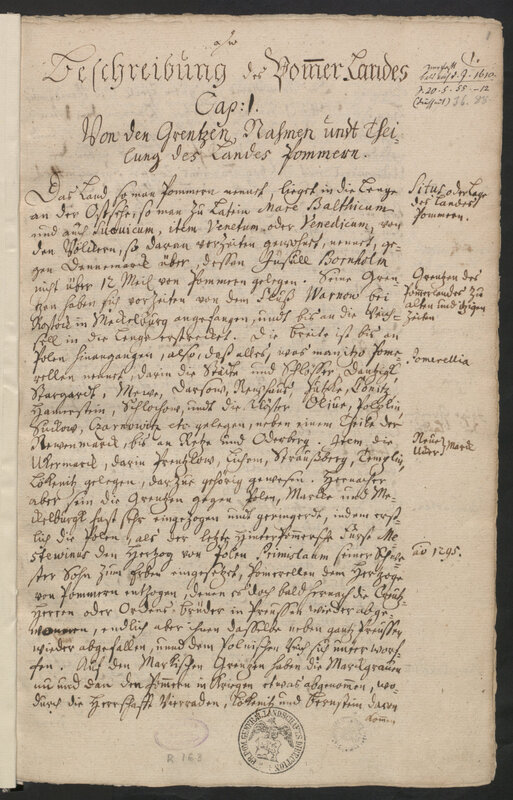 Beschreibung des Pommer Landes
Cap: 1.
Von den Grentzen, Nahmen undt Thei-
lung des Landes Pommern.
Das Land, so man Pommern nennet, lieget in die Lenge
an der Ostsehe, so man zu Latein Mare Balthicum
und auch Suevicum, item Venetum oder Venedicum, von
den Völckern, so daran vorzeiten gewohnet, nennet, ge-
gen Dennemarck über, dessen Insull Bornholm
nicht über 12 Meil von Pommern gelegen. Seine Gren-
tzen haben sich vorzeiten von dem Fluß Warnow bei
Rostock in Meckelburg angefangen, undt bis an die Weich-
sell in die Lenge erstrecket. Die breite ist bis an
Polen hinangangen, also, daß alles, was man itzo Pome-
rellen nennet, darin die Städte und Schlösser, Dantzig,
Stargardt, Mewe, Darsow, Newhaus, Conitz,
Hamerstein, Schlochow, undt die Klöster Olive, Polplin
Suckow, Czarnowitz etc gelegen, neben einem Theile der
Newenmarck, bis an Netze und Oderberg. Item die
Ukermarck, darin Prentzlow, Lichem, Straußberg, Templin,
Lökenitz gelegen, darzu gehörig gewesen. Hernacher
aber sein die Grentzen gegen Polen, Marcke und Me-
ckelburgk fast sehr eingezogen und geringerdt, indem erst-
lich die Polen, als der letzte HinterPomersche Fürst Me-
stewinus den Hertzog von Polen Primislaum seiner Schwe-
ster Sohn zum Erben eingesetzet, Pomerellen dem Hertzoge
von Pommern entzogen, denen es doch bald hernach die Creutz
Herren oder Ordens brüder in Preussen wieder abge-
wonnen, endlich aber ihnen dasselbe neben gantz Preussen
wieder abgefallen, und dem Polnischen Reich sich unterworf-
fen. Auf den Märkischen Grentzen haben die Marckgraven
nu und dan den Pommern in Kriegen etwas abgenommen, wo-
durch die Herrschafft Vierraden, Lökenitz und Bernstein davon
komm
1.
1610
Situs oder Lage
des Landes
Pommern.
Grentzen des
Pomerlandes zu
alten und itzigen
Zeiten
Pomerellia
Neue
Uker } Marck
aō 1295.
R 163